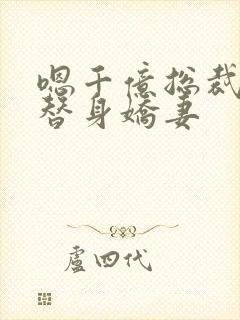 唱千億総裁
替身嬌妻
盧四代